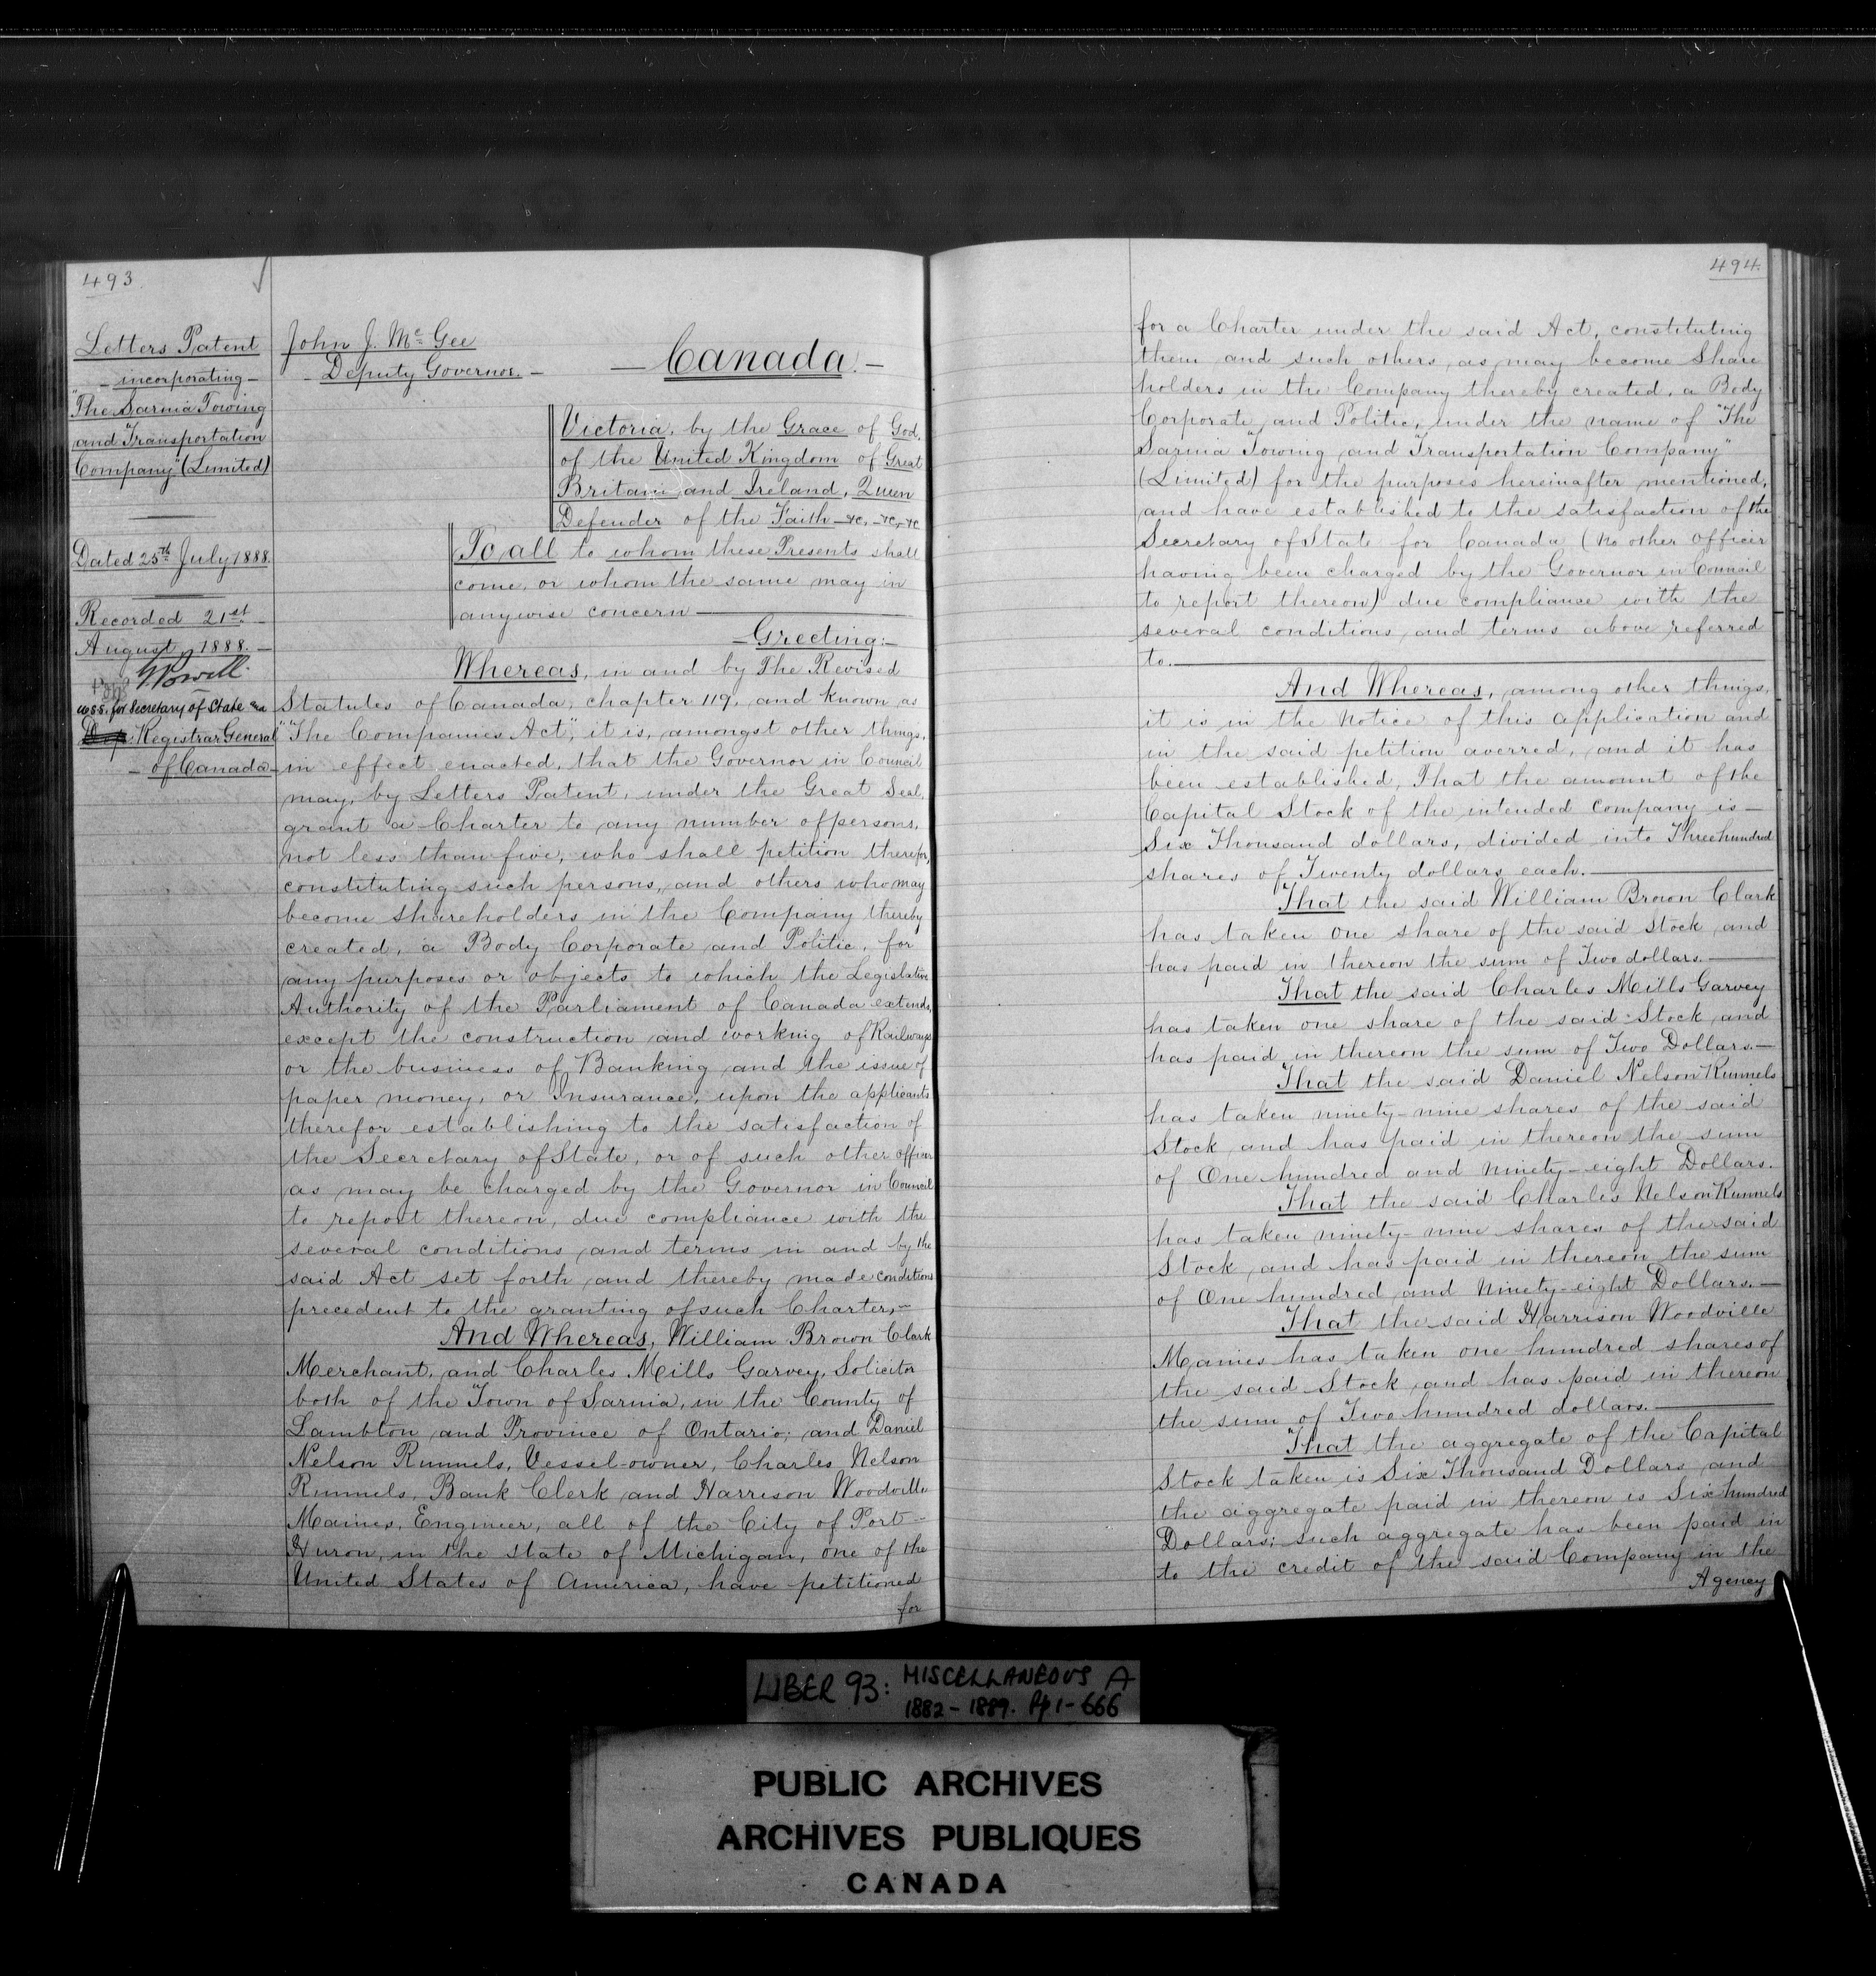 493
Letters Patent
- incorporating -
"The Sarnia Towing
and Transportation
Company" (Limited)
Dated 25th July 1888.
Recorded 21st
August, 1888. -
Powell
U.S.S. for Secretary of State and
Registrar General
- of Canada -
John J. McGee
- Deputy Governor. -
- Canada. -
Victoria, by the Grace of God,
of the United Kingdom of Great
Britain and Ireland, Queen
Defender of the Faith - &c. - &c. - &c
To all to whom these Presents shall
come, or whom the same may in
anywise concern
- Greeting: -
Whereas, in and by The Revised
Statutes of Canada, chapter 119, and known as
"The Companies Act", it is, amongst other things,
in effect enacted, that the Governor in Council
may, by Letters Patent, under the Great Seal,
grant a Charter to any number of persons,
not less than five, who shall petition therefor,
constituting such persons, and others who may
become shareholders in the Company thereby
created, a Body Corporate and Politic, for
any purposes or objects to which the Legislative
Authority of the Parliament of Canada extends,
except the construction and working of Railways
or the business of Banking and the issue of
paper money, or Insurance, upon the applicants
therefor establishing to the satisfaction of
the Secretary of State, or of such other officer
as may be charged by the Governor in Council
to report thereon, due compliance with the
several conditions and terms in and by the
said Act set forth and thereby made conditions
precedent to the granting of such Charter, -
And Whereas, William Brown Clark
Merchant, and Charles Mills Garvey, Solicitor
both of the Town of Sarnia, in the County of
Lambton and Province of Ontario; and Daniel
Nelson Runnels, Vessel-owner, Charles Nelson
Runnels, Bank Clerk and Harrison Woodville
Maines, Engineer, all of the City of Port-
Huron, in the State of Michigan, one of the
United States of America, have petitioned
for
494.
for a Charter under the said Act, constituting
them and such others, as may become Share
holders in the Company thereby created, a Body
Corporate and Politic, under the name of "The
Sarnia Towing and Transportation Company"
(Limited) for the purposes hereinafter mentioned,
and have established to the satisfaction of the
Secretary of State for Canada (no other officer
having been charged by the Governor in Council
to report thereon) due compliance with the
several conditions and terms above referred
to.
And Whereas, among other things,
it is in the Notice of this application and
in the said petition averred, and it has
been established, That the amount of the
Capital Stock of the intended Company is -
Six Thousand dollars, divided into Three hundred
shares of Twenty dollars each.
That the said William Brown Clark
has taken one share of the said Stock and
has paid in thereon the sum of Two dollars. -
That the said Charles Mills Garvey
has taken one share of the said Stock and
has paid in thereon the sum of Two Dollars. -
That the said Daniel Nelson Runnels
has taken ninety-nine shares of the said
Stock and has paid in thereon the sum
of One hundred and ninety-eight Dollars.
That the said Charles Nelson Runnels
has taken ninety-nine shares of the said
Stock, and has paid in thereon the sum
of One hundred and Ninety-eight Dollars. -
That the said Harrison Woodville
Maines has taken one hundred shares of
the said Stock and has paid in thereon
the sum of Two hundred dollars.
That the aggregate of the Capital
Stock taken is Six Thousand Dollars and
the aggregate paid in thereon is Six hundred
Dollars; such aggregate has been paid in
to the credit of the said Company in the
Agency
LIBER 93: MISCELLANEOUS A
1882-1889. Pp 1-666
PUBLIC ARCHIVES
ARCHIVES PUBLIQUES
CANADA